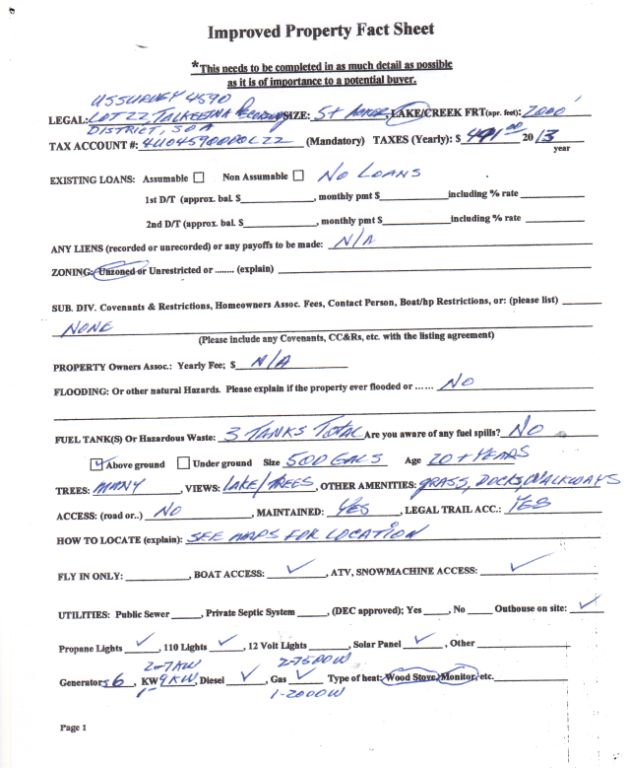 Improved Property Fact Sheet
*This needs to be completed in as much detail as possible
as it is of importance to a potential buyer.
US SURVEY 4590
LEGAL: LOT 22, TALKEETNA RECORDING SIZE: 5+ ACRES, LAKE/CREEK FRT(apr. feet): 2000'
DISTRICT, SOA
TAX ACCOUNT #: 4U04590000L22 (Mandatory) TAXES (Yearly): $ 491.00 2013
year
EXISTING LOANS: Assumable ☐ Non Assumable ☐ NO LOANS
1st D/T (approx. bal. $____________, monthly pmt $____________including % rate ____________
2nd D/T (approx. bal. $____________, monthly pmt $____________including % rate ____________
ANY LIENS (recorded or unrecorded) or any payoffs to be made: N/A
ZONING: Unzoned or Unrestricted or ........ (explain) ____________
SUB. DIV. Covenants & Restrictions, Homeowners Assoc. Fees, Contact Person, Boat/hp Restrictions, or: (please list) ______
NONE
(Please include any Covenants, CC&Rs, etc. with the listing agreement)
PROPERTY Owners Assoc.: Yearly Fee; $ N/A
FLOODING: Or other natural Hazards. Please explain if the property ever flooded or ...... NO
FUEL TANK(S) Or Hazardous Waste: 3 TANKS TOTAL Are you aware of any fuel spills? NO
☑ Above ground ☐ Under ground Size 500 GALS Age 20+ YEARS
TREES: MANY, VIEWS: LAKE/TREES, OTHER AMENITIES: GRASS, DOCKS, WALKWAYS
ACCESS: (road or..) NO, MAINTAINED: YES, LEGAL TRAIL ACC.: YES
HOW TO LOCATE (explain): SEE MAPS FOR LOCATION
FLY IN ONLY: ____________, BOAT ACCESS: ✓, ATV, SNOWMACHINE ACCESS: ✓
UTILITIES: Public Sewer _____, Private Septic System _____, (DEC approved); Yes ____, No ____ Outhouse on site: ✓
Propane Lights ✓, 110 Lights ✓, 12 Volt Lights _____, Solar Panel ✓, Other ____________
2-7KW 2-7500W
Generators 6, KW 9KW, Diesel ✓, Gas ✓ Type of heat: Wood Stove, Monitor, etc.____________
1- 1-2000W
Page 1